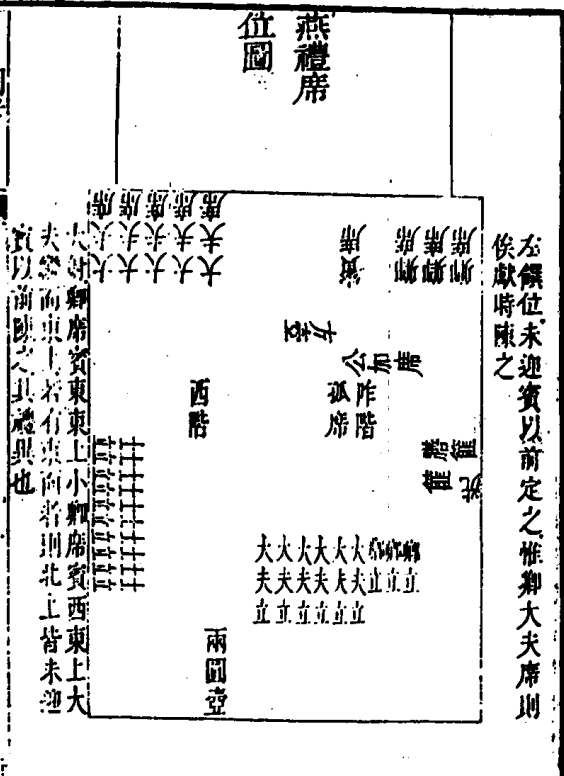 燕禮席
位圖
右饌位未迎賓以前定之惟卿大夫席則
俟獻時陳之
卿席
卿席
卿席
賓席
大夫席
大夫席
大夫席
大夫席
大夫席
方壺
公加席
阼階
孤席
西階
篚
膳篚
洗
卿立
卿立
卿立
大夫立
大夫立
大夫立
大夫立
大夫立
大夫立
士立
士立
士立
士立
士立
士立
士立
士立
兩圜壺
大射卿席賓東東上小卿席賓西東上大
夫繼而東上若有東面者則北上皆未迎
賓以前陳之其禮異也